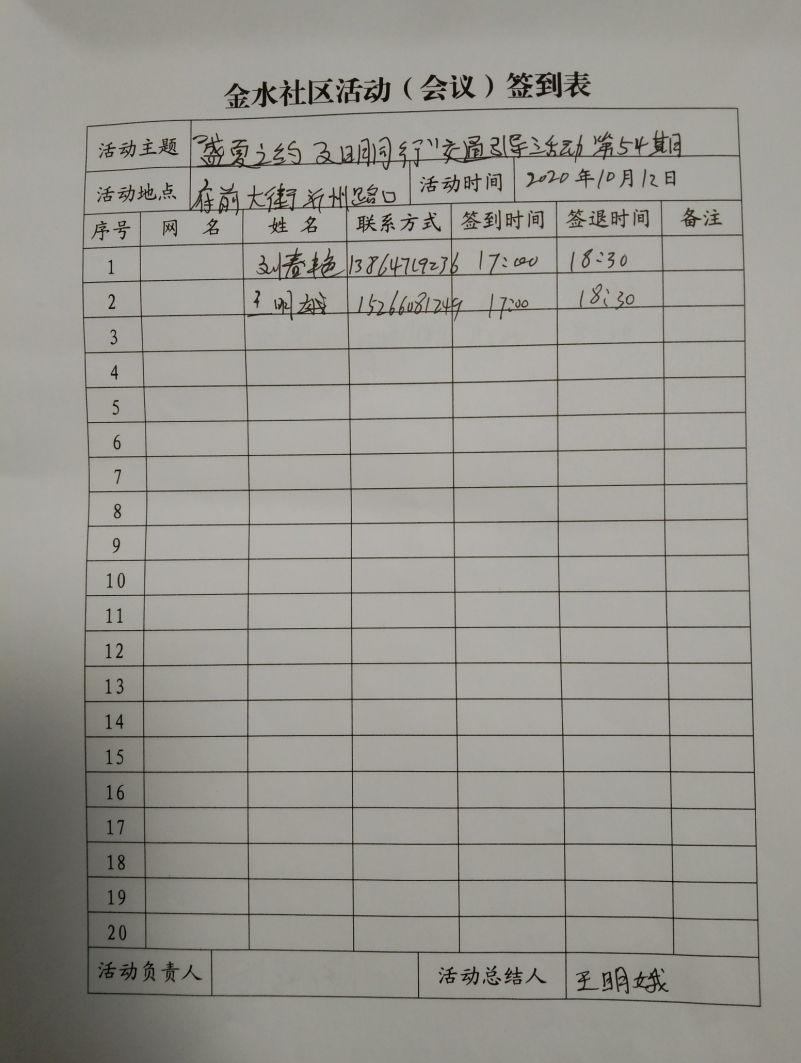 金水社区活动（会议）签到表
活动主题 "盛夏之约 文明同行"交通引导活动 第54期
活动地点 府前大街沂州路口 活动时间 2020年10月12日
序号 网 名 姓 名 联系方式 签到时间 签退时间 备注
1 刘春艳 13864719236 17:00 18:30
2 王明娥 15266081249 17:00 18:30
3
4
5
6
7
8
9
10
11
12
13
14
15
16
17
18
19
20
活动负责人 活动总结人 王明娥